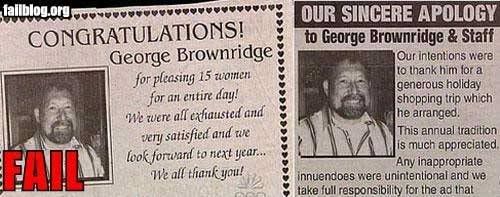 failblog.org
CONGRATULATIONS!
George Brownridge
for pleasing 15 women
for an entire day!
We were all exhausted and
very satisfied and we
look forward to next year...
We all thank you!
FAIL
OUR SINCERE APOLOGY
to George Brownridge & Staff
Our intentions were
to thank him for a
generous holiday
shopping trip which
he arranged.
This annual tradition
is much appreciated.
Any inappropriate
innuendoes were unintentional and we
take full responsibility for the ad that